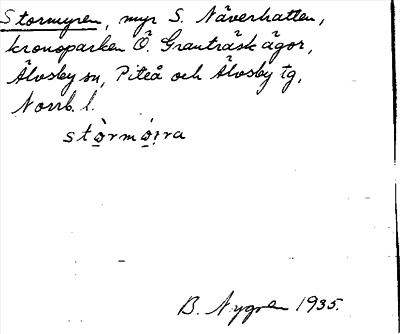 Stormyren, myr S. Näverhatten,
kronoparken Ö. Granträsk ägor,
Älvsby sn, Piteå och Älvsby tg,
Norrb. l.
stò̱rmó̱i̯ra
B. Nygren 1935.